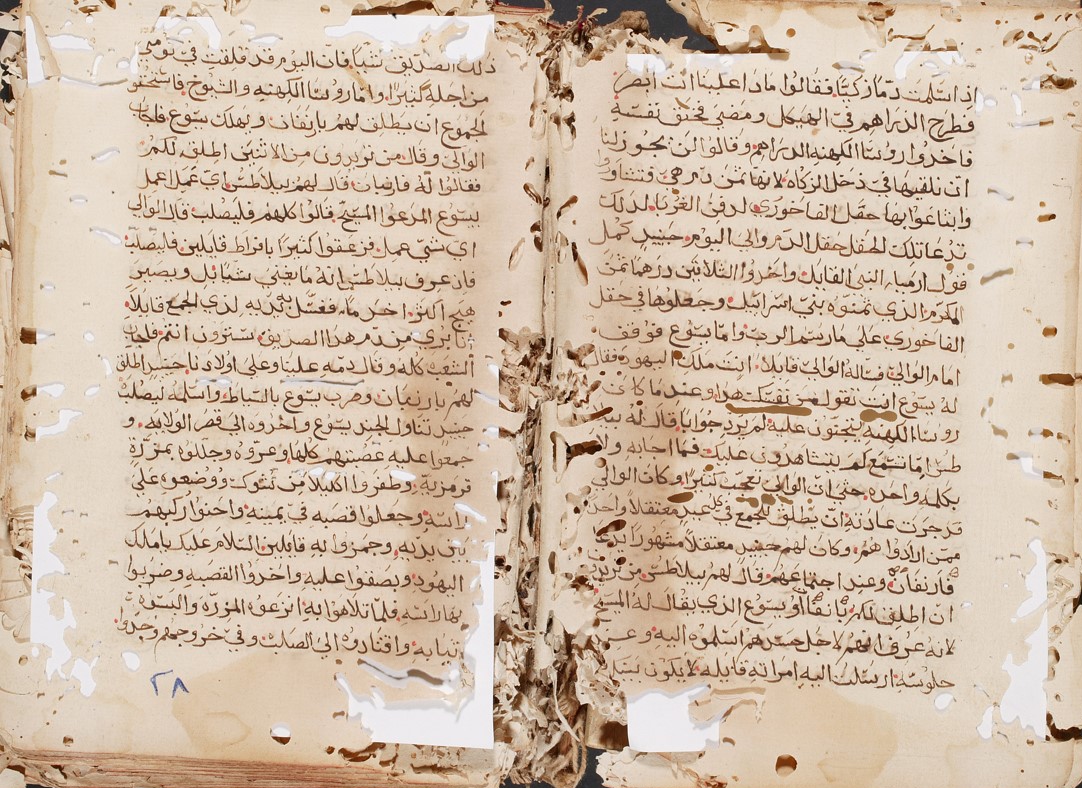 اذ اسلمت دمًا زكيًا فقالوا ماذا علينا انت ابصر
فطرح الدراهم في الهيكل ومضى فخنق نفسه
فاخذوا روسا الكهنه الدراهم وقالوا لن يجوز لنا
ان نلقيها في دخل الزكاه لانها ثمن دم هي فتشاوروا
وابتاعوا بها حقل الفاخوري لدفن الغربا لذلك
تدعا تلك الحقل حقل الدم والي اليوم حينيذ كمل
قول ارمياء النبي القايل واخذوا الثلاثين درهما ثمن
المكرم الذي ثمنوه بني اسراييل وجعلوها في حقل
الفاخوري علي ما رسم الرب واما يسوع فوقف
امام الوالي فساله الوالي قايلا انت ملك اليهود فقال
له يسوع انت تقول من نفسك هذا وعندما كانت
روسا الكهنه يبحثون عليه لم يرد جوابا قال له بيلا
طس اما تسمع كم يتشاهدون عليك فما اجابه ولا
بكلمه واحده حتي ان الوالي تعجب كثيرا وكان الوالي
قد جرت عادته ان يطلق للجمع في كل عيد معتقلا واحدا
ممن ارادوا هم وكان لهم حينيذ معتقلا مشهورا يدعا
فارنفان وعند اجتماعهم قال لهم بيلاطس من تريدون
ان اطلق لكم بارنفان او يسوع الذي يقال له المسيح
لانه عرف انهم لاجل حسدهم اسلموه اليه وعند
جلوسه ارسلت اليه امراته قايله لا يكون بينك
ذلك الصديق شيا فان اليوم قد قلقت في نومي
من اجله كثيرا واما روسا الكهنه والشيوخ فاستحثوا
الجموع ان يطلق لهم بارنفان ويهلك يسوع فاجاب
الوالي وقال من تريدون من الاثنين اطلق لكم
فقالوا له فارنبان قال لهم بيلاطس اي عمل اعمل
بيسوع المدعوا المسيح قالوا كلهم فليصلب قال الوالي
اي شي عمل فزعقوا كثيرا بافراط قايلين فليصلب
فاذ عرف بيلاطس انه ما يغني شيا بل ويصير
هيج اكثر اخذ ماء فغسل يديه لدي الجمع قايلا
انا بري من دم هذا الصديق سترون انتم فاجاب
الشعب كله وقال دمه علينا وعلي اولادنا حينيذ اطلق
لهم بارنبان وضرب يسوع بالسياط واسلمه ليصلب
حينيذ تناول الجند يسوع واخذوه الي قصر الولايه و
جمعوا عليه عصبتهم كلها وعروه وجللوه بمزرة
قرمزية وظفروا اكليلا من شوك ووضعوه علي
راسه وجعلوا قصبه في يمينه واحنوا ركبهم
بين يديه وجمزوا به قايلين السلام عليك يا ملك
اليهود وبصقوا عليه واخذوا القصبه وضربوا
بها راسه فلما تلاهوا به انزعوه المزره والبسوه
ثيابه واقتادوه الي الصلب وفي خروجهم وجدوا
٢٨